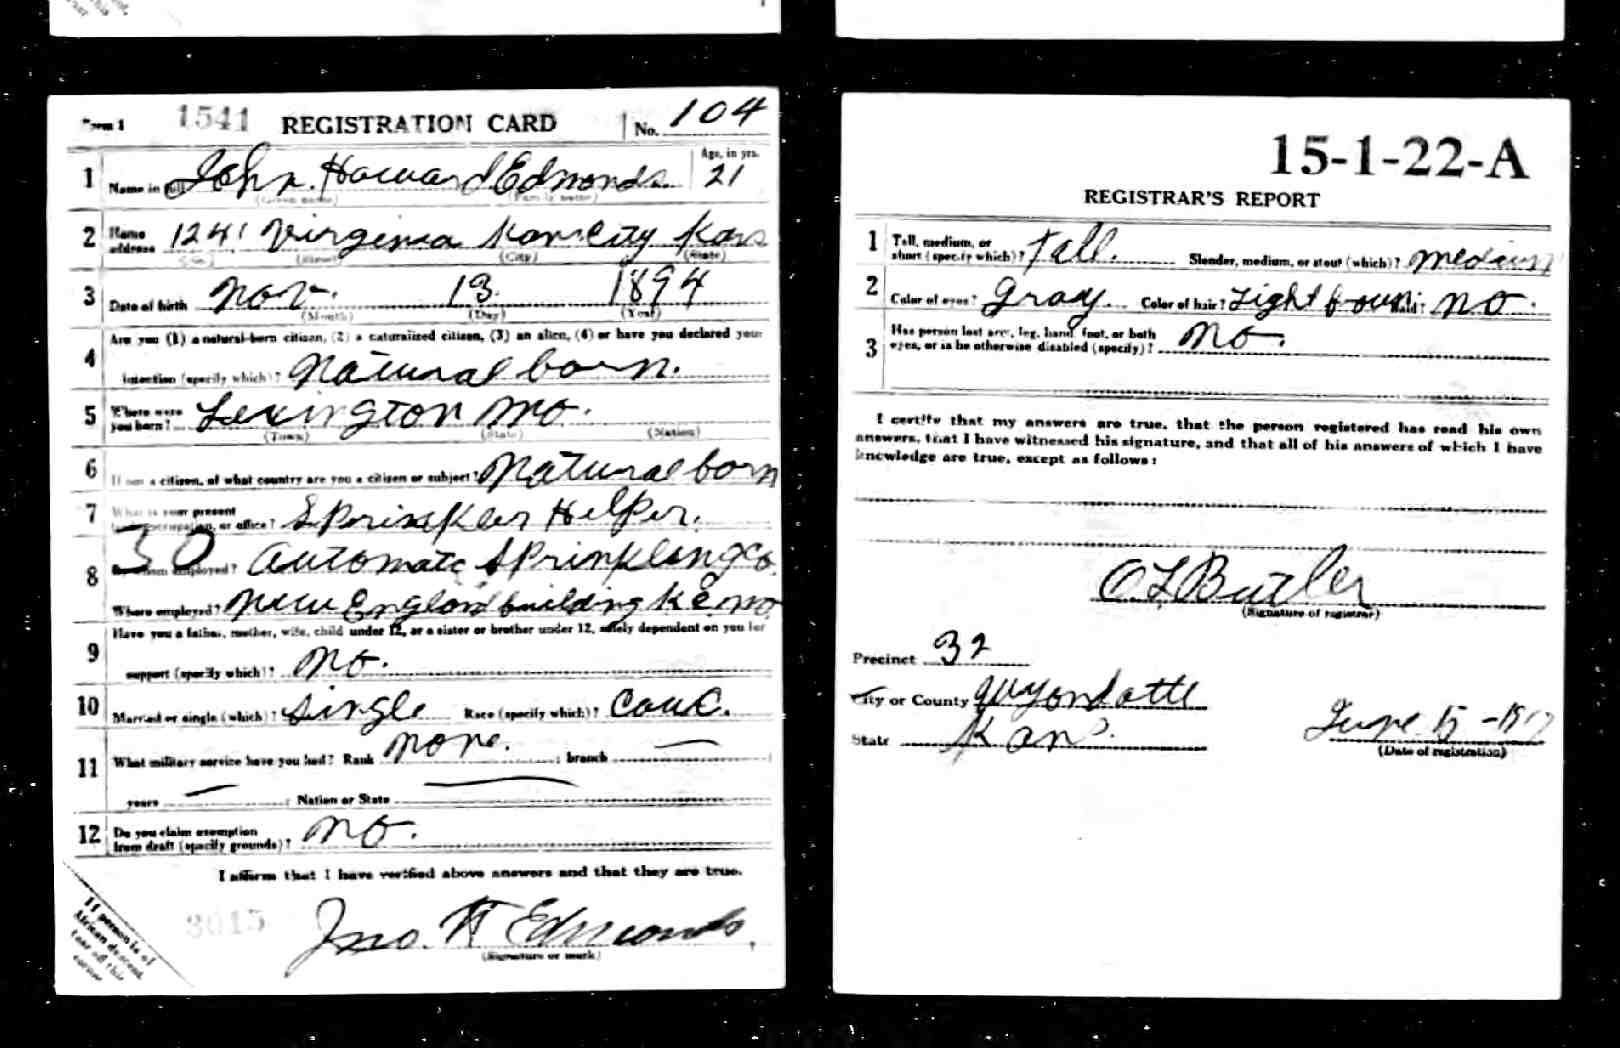 Form 1 1541 REGISTRATION CARD No. 104
1 Name in full John Howard Edmonds Age, in yrs. 21
(Given name) (Family name)
2 Home address 1241 Virginia Kans City Kans
(No.) (Street) (City) (State)
3 Date of birth Nov. 13 1894
(Month) (Day) (Year)
4 Are you (1) a natural-born citizen, (2) a naturalized citizen, (3) an alien, (4) or have you declared your
intention (specify which)? Natural born.
5 Where were you born? Lexington Mo.
(Town) (State) (Nation)
6 If not a citizen, of what country are you a citizen or subject? Natural born
7 What is your present trade, occupation, or office? Sprinkler Helper.
30
8 By whom employed? Automatc Sprinkling Co.
Where employed? New England building K C Mo
9 Have you a father, mother, wife, child under 12, or a sister or brother under 12, solely dependent on you for
support (specify which)? No.
10 Married or single (which)? Single Race (specify which)? Cauc.
11 What military service have you had? Rank none. ; branch —
years — ; Nation or State —
12 Do you claim exemption from draft (specify grounds)? No.
I affirm that I have verified above answers and that they are true.
3015
Jno. H Edmonds
(Signature or mark)
If person is of
African descent,
tear off this
corner
15-1-22-A
REGISTRAR'S REPORT
1 Tall, medium, or short (specify which)? Tall. Slender, medium, or stout (which)? medium
2 Color of eyes? Gray Color of hair? Light brown Bald? No.
3 Has person lost arm, leg, hand, foot, or both
eyes, or is he otherwise disabled (specify)? No.
I certify that my answers are true, that the person registered has read his own
answers, that I have witnessed his signature, and that all of his answers of which I have
knowledge are true, except as follows:
O L Butler
(Signature of registrar)
Precinct 32
City or County Wyondotte
State Kans.
June 5 - 1917
(Date of registration)